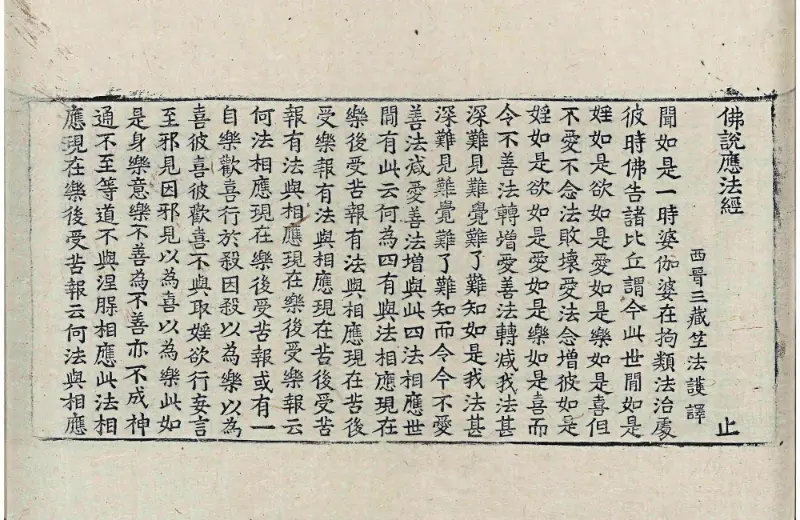 佛說應法經
止
西晉三藏竺法護譯
聞如是一時婆伽婆在拘類法治處
彼時佛告諸比丘謂今此世間如是
婬如是欲如是愛如是樂如是喜但
不愛不念法敗壞愛法念增彼如是
婬如是欲如是愛如是樂如是喜而
令不善法轉增愛善法轉減我法甚
深難見難覺難了難知如是我法甚
深難見難覺難了難知而令今不愛
善法減愛善法增與此四法相應世
間有此云何為四有與法相應現在
樂後受苦報有法與相應現在苦後
受樂報有法與相應現在苦後受苦
報有法與相應現在樂後受樂報云
何法相應現在樂後受苦報或有一
自樂歡喜行於殺因殺以為樂以為
喜彼喜彼歡喜不與取婬欲行妄言
至邪見因邪見以為喜以為樂此如
是身樂意樂不善為不善亦不成神
通不至等道不與涅槃相應此法相
應現在樂後受苦報云何法與相應